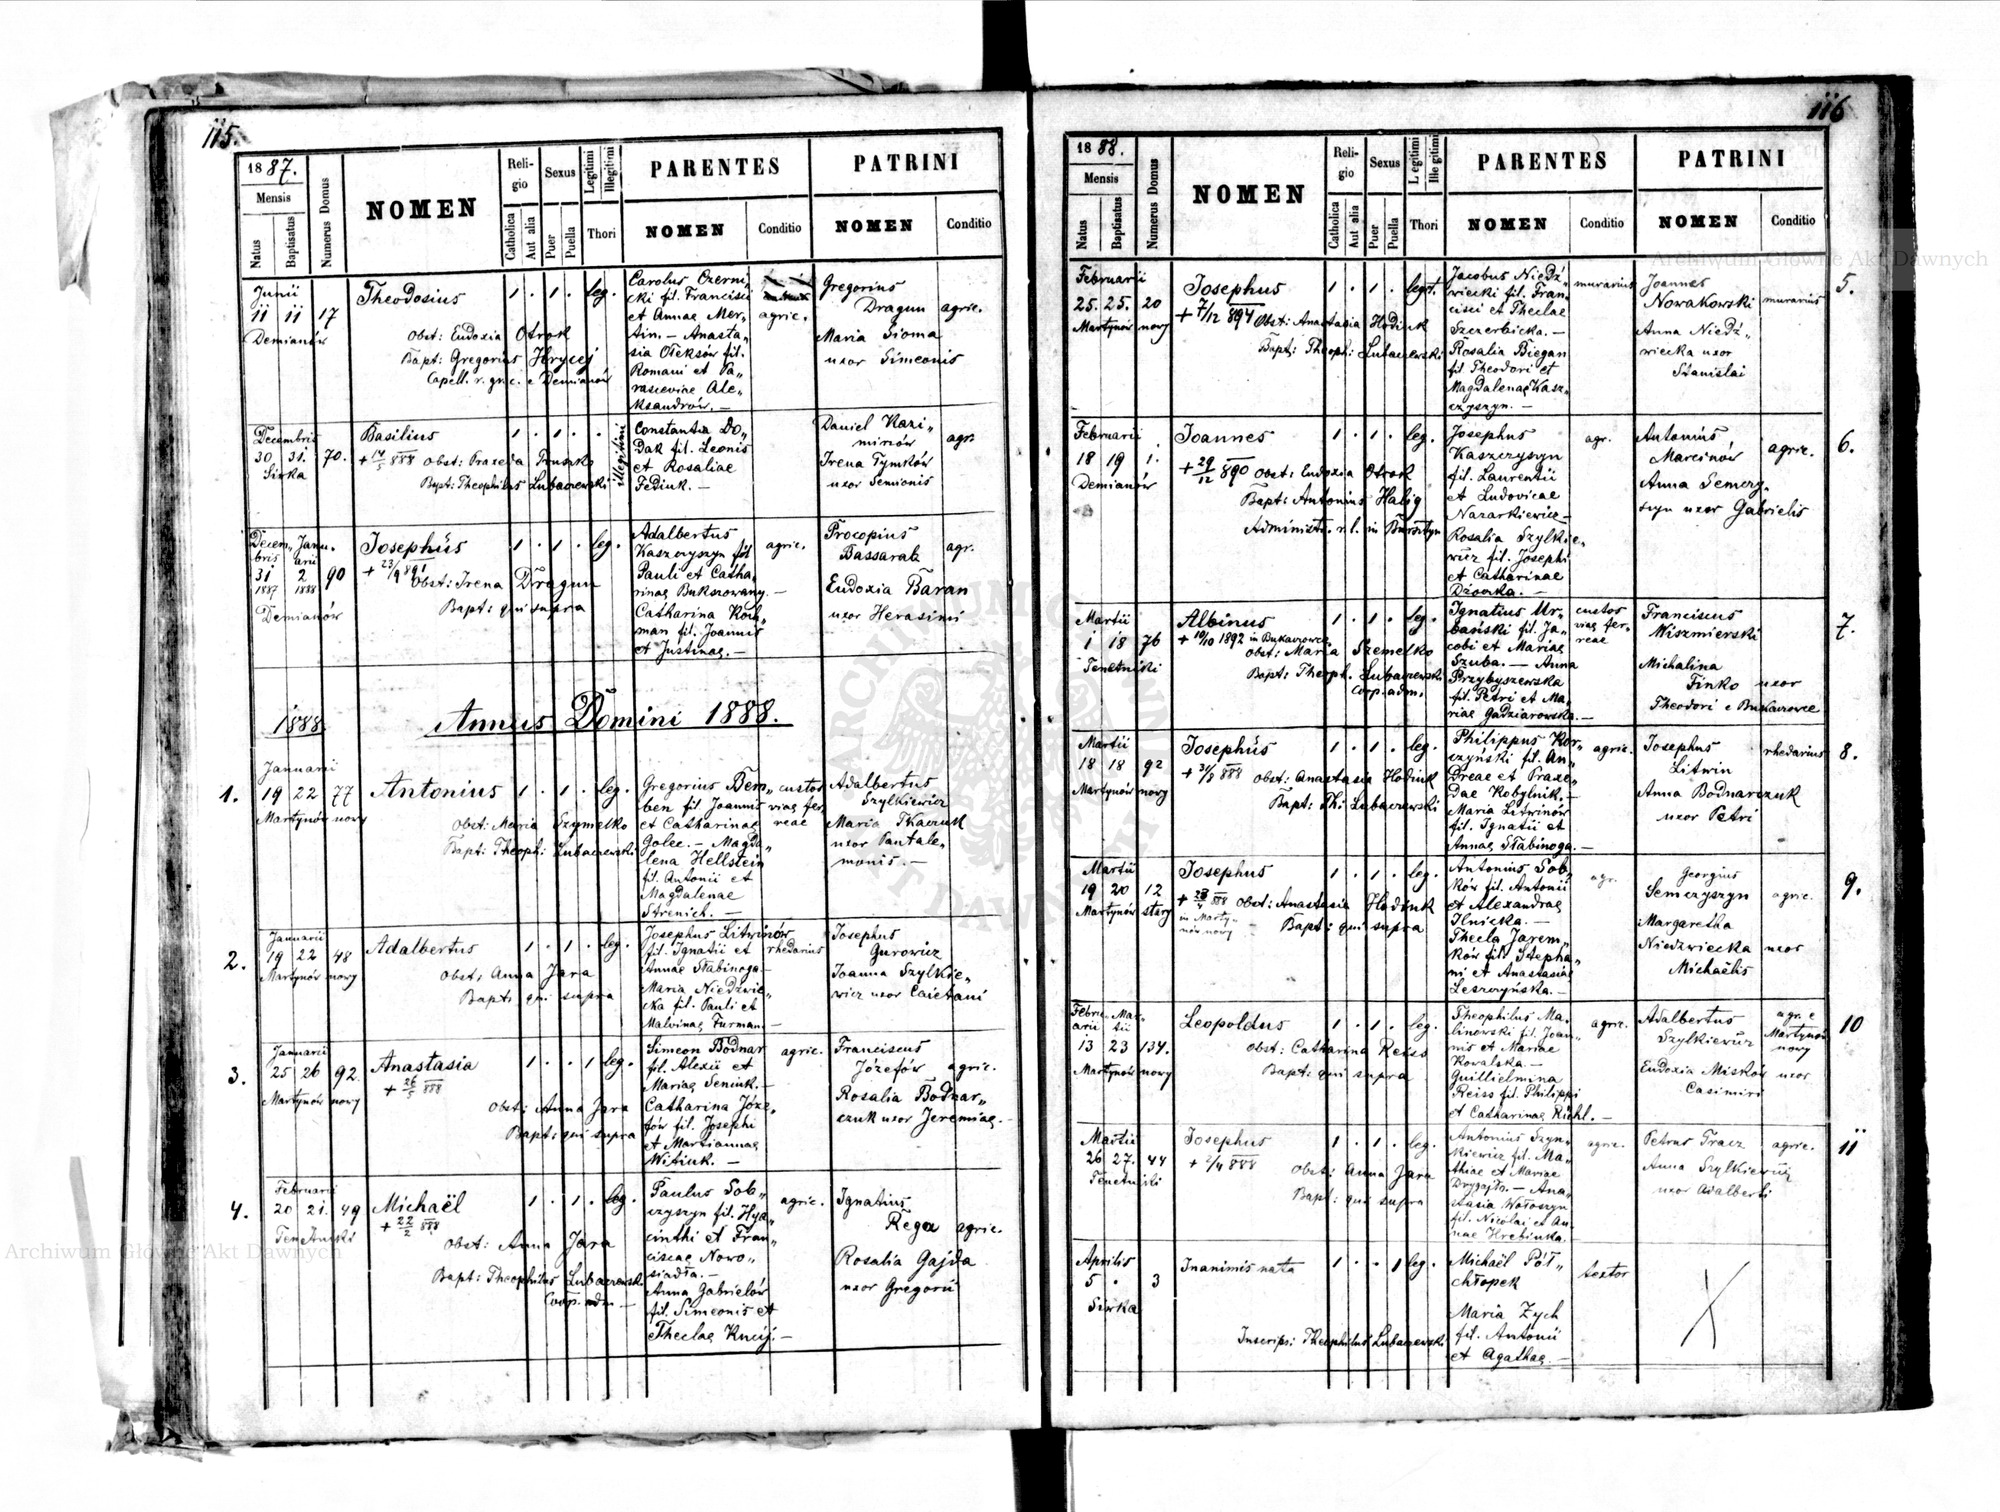 115.
1887.
Mensis
Natus
Baptisatus
Numerus Domus
NOMEN
Religio
Catholica
Aut alia
Sexus
Puer
Puella
Legitimi
Illegitimi
Thori
PARENTES
NOMEN
Conditio
PATRINI
NOMEN
Conditio
Junii
11 11 17
Demianów
Theodosius
Obst: Eudoxia Otrok
Bapt: Gregorius Hrycej
Capell. r. gr. c. e Demianów
1 . 1 . leg.
Carolus Czerni„
cki fil. Francisci
et Annae Mer„
tin. — Anasta„
sia Oleksów fil.
Romani et Pa„
rasceviae Ale„
ksandrów. —
agric.
Gregorius
Dragun agric.
Maria Sioma
uxor Simeonis
Decembris
30 31 70.
Sirka
Basilius
+ 14/5 888 Obst: Praxeda Pruszko
Bapt: Theophilus Lubaczewski
1 . 1 . .
illegitimi
Constantia Do„
dak fil. Leonis
et Rosaliae
Fediuk. —
Daniel Kazi„
mirów agr.
Irena Tymków
uxor Semionis
Decem„ Janu„
bris arii
31 2 90
1887 1888
Demianów
Josephus
+ 23/9 891
Obst: Irena Dragun
Bapt: qui supra
1 . 1 . leg.
Adalbertus
Kaszczyszyn fil
Pauli et Catha„
rinae Bukszowany. —
Catharina Koch„
man fil. Joannis
et Justinae. —
agric.
Procopius
Bassarab agr.
Eudoxia Baran
uxor Herasimi
1888
Annus Domini 1888.
1.
Januarii
19 22 77
Martynów nowy
Antonius
Obst: Maria Szymelko
Bapt: Theoph: Lubaczewski
1 . 1 . leg.
Gregorius Dem„
ben fil Joannis
et Catharinae
Golec. — Magda„
lena Hellstein
fil. Antonii et
Magdalenae
Strenich. —
custos
viae fer„
reae
Adalbertus
Szylkiewicz
Maria Tkaczuk
uxor Pantale„
monis. —
2.
Januarii
19 22 48
Martynów nowy
Adalbertus
Obst: Anna Jara
Bapt: qui supra
1 . 1 . leg.
Josephus Litwinów
fil. Ignatii et
Annae Stabinoga —
Maria Niedźwie„
cka fil. Pauli et
Malvinae Furman —
rhedarius
Josephus
Gurowicz
Joanna Szylkie„
wicz uxor Caietani
3.
Januarii
25 26 92.
Martynów nowy
Anastasia
+ 26/5 888
Obst: Anna Jara
Bapt: qui supra
1 . . 1 leg.
Simeon Bodnar
fil. Alexii et
Mariae Seniuk. —
Catharina Józe„
fów fil. Josephi
et Martiannae
Witiuk. —
agric.
Franciscus
Józefów agric.
Rosalia Bodnar„
czuk uxor Jeremiae. —
4.
Februarii
20 21. 49
Tenetniki
Michaël
+ 22/2 888
Obst: Anna Jara
Bapt: Theophilus Lubaczewski
Coop. adm —
1 . 1 . leg.
Paulus Sob„
czyszyn fil. Hya„
cinthi et Fran„
ciscae Nowo„
siadła. —
Anna Gabrielów
fil. Simeonis et
Theclae Kucij. —
agric.
Ignatius
Rega agric.
Rosalia Gajda
uxor Gregorii
116
1888.
Mensis
Natus
Baptisatus
Numerus Domus
NOMEN
Religio
Catholica
Aut alia
Sexus
Puer
Puella
Legitimi
Illegitimi
Thori
PARENTES
NOMEN
Conditio
PATRINI
NOMEN
Conditio
Februarii
25. 25. 20
Martynów nowy
Josephus
+ 7/12 894 Obst: Anastasia Hodiuk
Bapt: Theoph: Lubaczewski
1 . 1 . legit.
Jacobus Niedź„
wiecki fil. Fran„
cisci et Theclae
Szczerbicka. —
Rosalia Biegan
fil Theodori et
Magdalenae Kasz„
czyszyn. —
murarius
Joannes
Nowakowski murarius
Anna Niedź„
wiecka uxor
Stanislai
5.
Februarii
18 19 1.
Demianów
Joannes
+ 29/12 890 Obst: Eudoxia Otrok
Bapt: Antonius Halig
Administr. r. l. in Bursztyn
1 . 1 . leg.
Josephus
Kaszczyszyn
fil. Laurentii
et Ludovicae
Nazarkiewicz —
Rosalia Szylkie„
wicz fil. Josephi
et Catharinae
Dżowka. —
agr.
Antonius
Marcinów agric.
Anna Semczy„
szyn uxor Gabrielis
6.
Martii
1 18 76
Tenetniki
Albinus
+ 10/10 1892 in Bukaczowce
Obst: Maria Szemelko
Bapt: Theoph. Lubaczewski
Coop. adm.
1 . 1 . leg.
Ignatius Ur„
bański fil. Ja„
cobi et Mariae
Szuba. — Anna
Przybyszewska
fil. Petri et Ma„
riae Gadziarowska. —
custos
viae fer„
reae
Franciscus
Wiszmierski
Michalina
Finko uxor
Theodori e Bukaczowce
7.
Martii
18 18 92
Martynów nowy
Josephus
+ 31/8 888
Obst: Anastasia Hodiuk
Bapt: Th: Lubaczewski
1 . 1 . leg.
Philippus Kor„
czyński fil. An„
dreae et Praxe„
dae Kobylnik. —
Maria Litwinów
fil. Ignatii et
Annae Stabinoga. —
agric.
Josephus rhedarius
Litwin
Anna Bodnarczuk
uxor Petri
8.
Martii
19 20 12
Martynów stary
Josephus
+ 28/4 888 Obst: Anastasia Hodiuk
in Marty„
nów nowy
Bapt: qui supra
1 . 1 . leg.
Antonius Sob„
ków fil. Antonii
et Alexandrae
Ilnicka. —
Thecla Jarem„
ków fil. Stepha„
ni et Anastasiae
Leszczyńska. —
agr.
Georgius
Semczyszyn agric.
Margaretha
Niedzwiecka uxor
Michaëlis
9.
Febru„ Mar„
arii tii
13 23 134.
Martynów nowy
Leopoldus
Obst: Catharina Reiss
Bapt: qui supra
1 . 1 . leg.
Theophilus Ma„
linowski fil. Joan„
nis et Mariae
Kowalska. —
Guillielmina
Reiss fil. Philippi
et Catharinae Richl. —
agric.
Adalbertus agr. e
Szylkiewicz Martynów
nowy
Eudoxia Misków uxor
Casimiri
10
Martii
26 27. 44
Tenetniki
Josephus
+ 2/4 888
Obst: Anna Jara
Bapt: qui supra
1 . 1 . leg.
Antonius Szyn„
kiewicz fil. Ma„
thiae et Mariae
Drygajło. — Ana„
stasia Wołoszyn
fil. Nicolai et An„
nae Hrebinka.
agric.
Petrus Tracz agric.
Anna Szylkiewicz
uxor Adalberti
11
Aprilis
5 . 3
Sirka
Inanimis nata
Inscrips: Theophilus Lubaczewski
1 . . 1 leg.
Michaël Pół„
chłopek
Maria Zych
fil. Antonii
et Agathae —
textor
Archiwum Główne Akt Dawnych
Archiwum Główne Akt Dawnych
ARCHIWUM GŁÓWNE AKT DAWNYCH